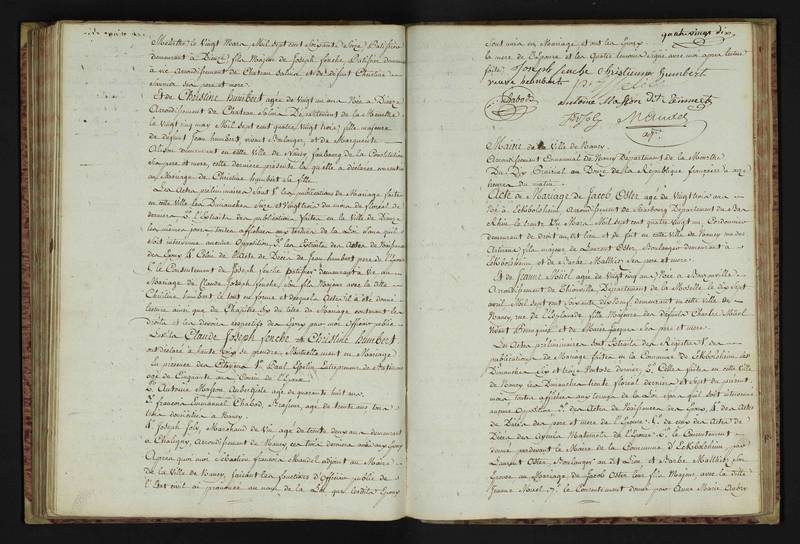 quatre vingt dix
Medette le Vingt Mars, Mil Sept cent Soixante Seize Patissier
demeurant à Dieuze fils Majeur de Joseph ferche, Patissier demeurant
à Vic Arrondissement de Chateau Salins et de défunte Christine
Saunier ses pere et mere.
Et de Christine humbert agée de Vingt un ans Née à Dieuze
Arrondissement de Chateau Salins Département de la Meurthe
le Vingt cinq may Mil Sept cent quatre Vingt trois, fille majeure
de défunt Jean humbert, vivant Boulanger, et de Marguerite
Alison demeurant en cette Ville de Nancy faubourg de la Constitution
Ses pere et mere, cette derniere presente laquelle a déclaré consentir
au Mariage de Christine humbert sa fille
Les Actes preliminaires sont 1° les publications de Mariage faites
en cette Ville les Dimanches Seize et Vingt trois du mois de floréal
dernier 2° L'Extrait des publications faites en la Ville de Dieuze
les mêmes jours toutes affichées aux termes de la Loi sans qu'il
soit intervenu aucune Opposition, 3° les Extraits des Actes de Naissance
des Epoux 4° Celui de l'Acte de Décès de Jean humbert pere de l'Epouse
5° le Consentement de Joseph ferche patissier demeurant à Vic au
Mariage de Claude Joseph ferche, son fils Majeur avec la dite
Christine humbert le tout en forme et desquels Actes il a été donné
lecture ainsi que du Chapitre Six du titre du Mariage contenant les
droits et les devoirs respectifs des Epoux par moi Officier public
Lesdits Claude Joseph ferche et Christine humbert
ont déclaré à haute voix se prendre Mutuellement en Mariage
En présence des Citoyens 1° Paul Entrepreneur de Batimens
agé de Cinquante ans Cousin de l'Epoux
2° Antoine Masson Aubergiste agé de quarante huit ans
3° francois Emmanuel Chabod, Brasseur, agé de trente ans tous
trois domiciliés à Nancy.
4° Joseph Joly, Marchand de Vin agé de trente deux ans demeurant
à Chaligny, Arrondissement de Nancy ces trois derniers amis des Epoux
Après quoi moi Sebastien francois Mandel adjoint au Maire
de la Ville de Nancy, faisant les fonctions d'Officier public de
l'Etat civil ai prononcé au nom de la Loi que lesdits Epoux
sont unis en Mariage et ont les Epoux
la mere de l'Epouse et les quatre temoins signé avec moi après lecture
faite. Joseph ferche Christienne humbert
veuve humbert
Chabod Antoine Masson
Jos Joly Mandel
adj.
Mairie de la Ville de Nancy.
Arrondissement Communal de Nancy Departement de la Meurthe
Du Dix Prairial an Douze de la République française à onze
heures du matin.
Acte de Mariage de Jacob Oster agé de Vingt trois ans
Né à Eckbolsheim, Arrondissement de Strasbourg Département du Bas
Rhin le trente Mars Mil sept cent quatre vingt un, Cordonnier
demeurant de droit au dit lieu et de fait en cette Ville de Nancy
fils majeur de Laurent Oster, Boulanger demeurant à
Eckbolsheim et de Barbe Matthis ses pere et mere.
Et de Jeanne Noüel agée de Vingt cinq ans Née à
Arrondissement de Thionville, Département de la Moselle le Sept
avril Mil Sept cent Soixante dix Neuf, demeurant en cette Ville de
Nancy, rue de l'Esplanade, fille Majeure des défunts Charles Noüel
Vivant et de Marie Jacques ses pere et mere.
Les Actes preliminaires sont Extraits des Registres 1° des
publications de Mariage faites en la Commune d'Eckbolsheim les
Dimanches et trois floréal dernier 2° Celles faites en cette Ville
de Nancy les Dimanches trente floréal dernier et Sept du present
mois toutes affichées aux termes de la Loi sans qu'il soit intervenu
aucune Opposition 3° des Actes de Naissances des Epoux, 4° des Actes
de Décès des pere et mere de l'Epouse 5° de ceux des Actes de
Décès des Ayeuls Maternels de l'Epouse 6° le Consentement
donné pardevant le Maire de la Commune d'Eckbolsheim, par
Laurent Oster, Boulanger au dit Lieu et Barbe Matthis, son
Epouse au Mariage de Jacob Oster leur fils Majeur, avec la dite
Jeanne Noüel 7° le Consentement donné par Anne Marie Aubry